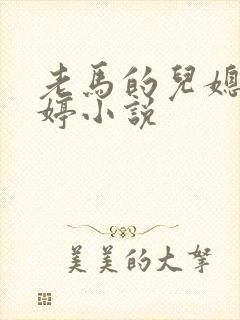 老馬的兒媳
婷小説
美美的大拏